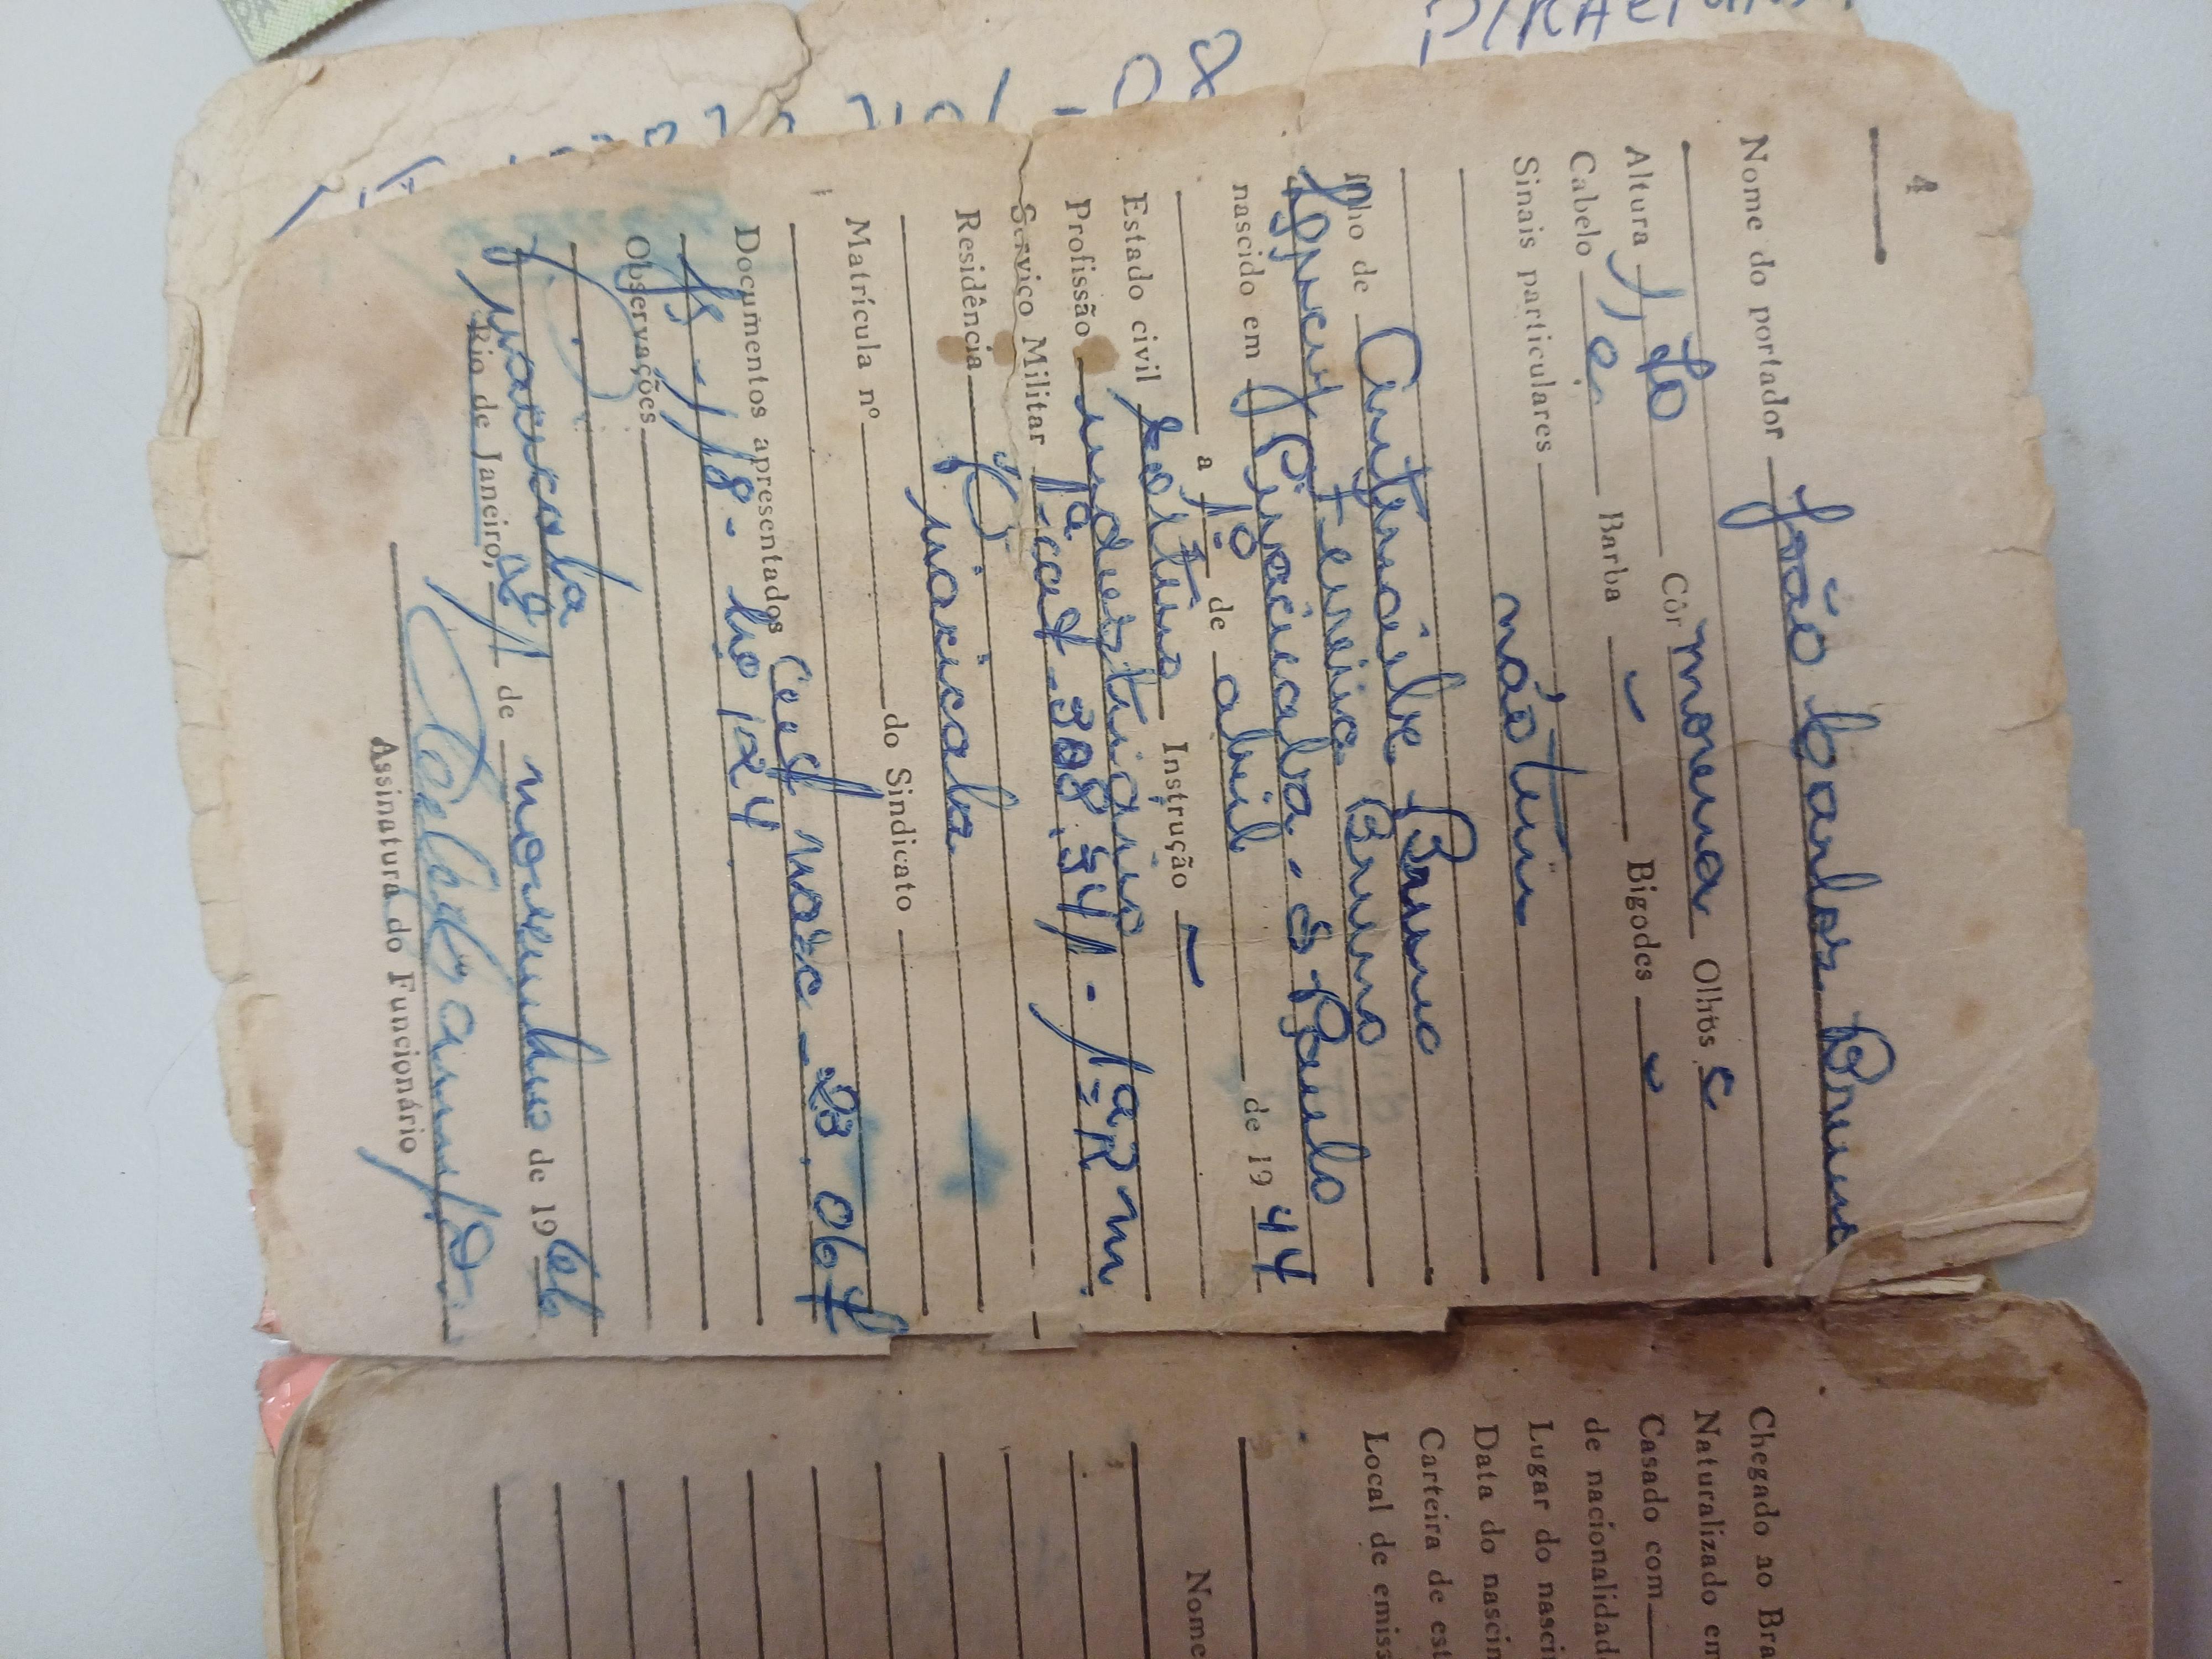 4
Nome do portador João Carlos Bruno
Altura 1,70 Côr morena Olhos C
Cabelo C. Barba - Bigodes -
Sinais particulares
não tem
filho de Antenor Bruno
Ferreira Bruno
nascido em Piracicaba - S. Paulo
a 10 de abril de 1944
Estado civil solteiro Instrução -
Profissão industriário
Serviço Militar 1ª cat - 308.541 - 1ª R m
Residência P.
Matrícula nº do Sindicato
Documentos apresentados Cert nasc - 23.067
fls. 118. liv 124
Observações
Rio de Janeiro, de novembro de 1966
Assinatura do Funcionário
Chegado ao Bra
Naturalizado em
Casado com
de nacionalidad
Lugar do nasci
Data do nascim
Carteira de est
Local de emiss
Nome